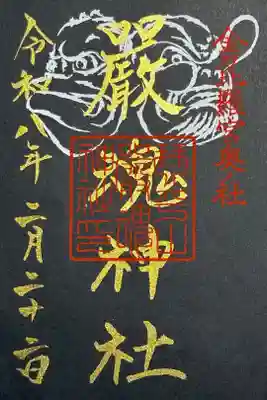 金刀比羅宮奥社
嚴魂神社
令和八年二月二十二日